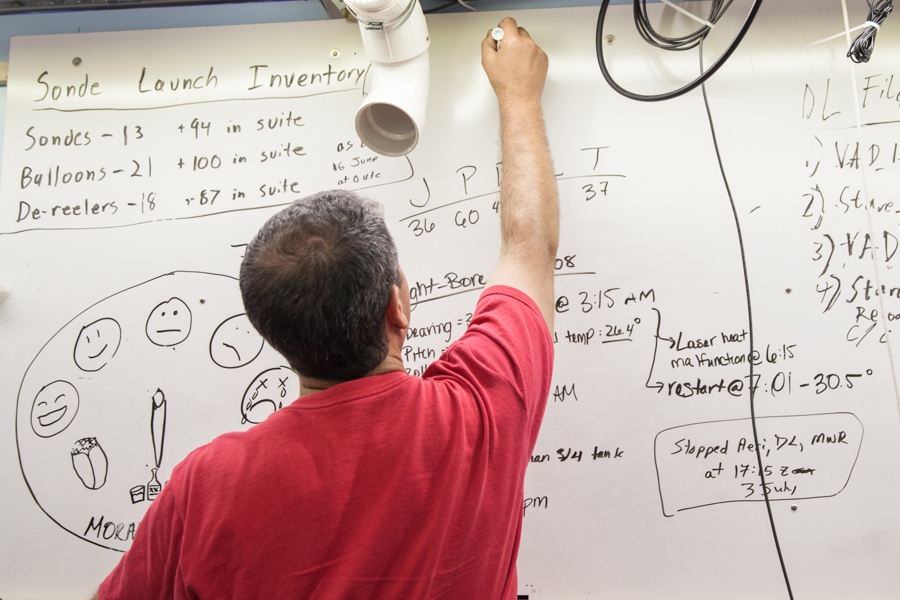 Sonde Launch Inventory
Sondes - 13 +94 in suite
Balloons - 21 +100 in suite
De-reelers - 18 +87 in suite
as
16 June
at
J P T
36 60 4 37
ght-Bore 08
@ 3:15 AM
bearing =
temp: 26.4°
Pitch =
Laser heat
malfunction @ 6:15
restart @ 7:01 - 30.5°
AM
3/4 tank
pm
Stopped Aeri, DL, MWR
at 17:15 z
3 July
MORA
DL File
1) VAD
2) Stare
3) VAD
4) Star